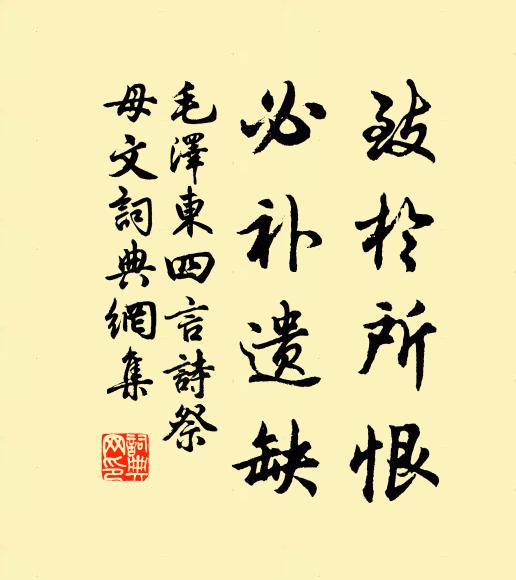 致於所恨
必补遗缺
毛澤東四言詩祭
母文詞典網集
詞典網印